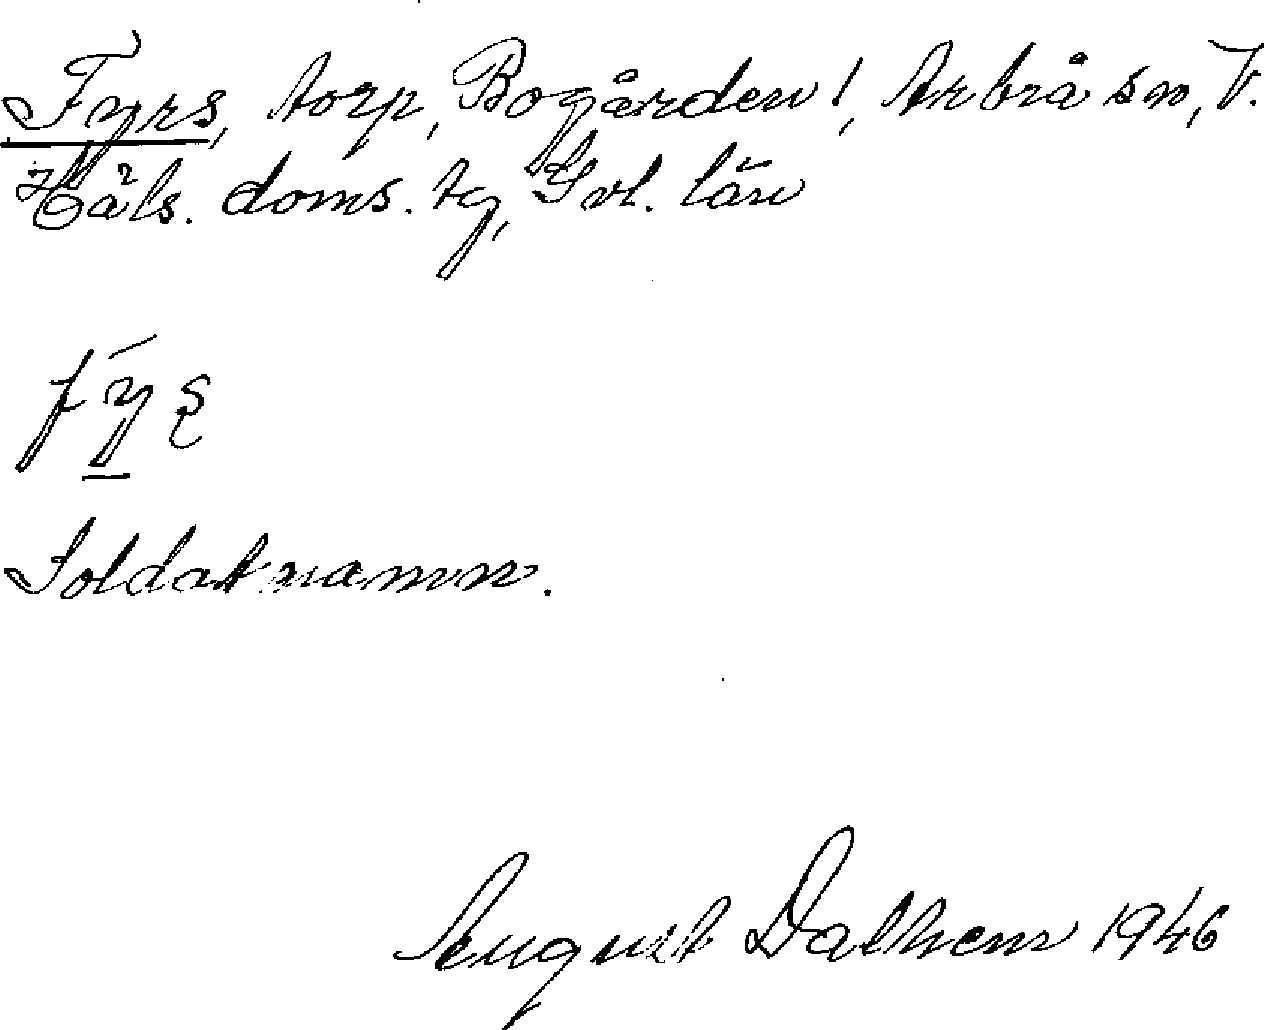 Fyrs, torp, Bogården 1, Arbrå sn, V.
Häls. doms. tg, Gvl. län
Soldatnamn.
August Dalhem 1946